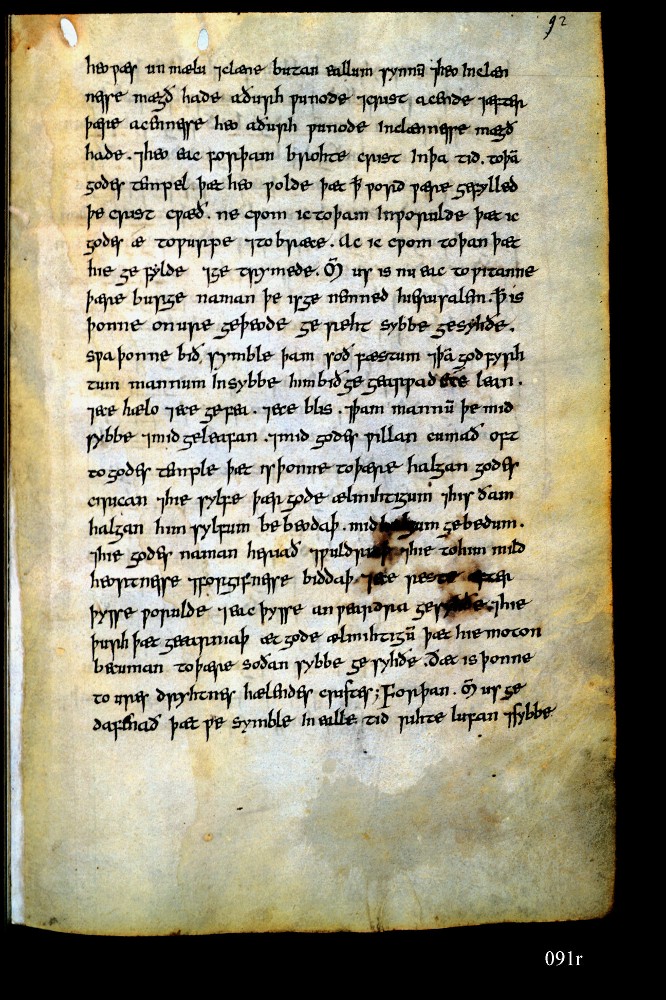 92
heo wæs un mælu ⁊clæne butan eallum synnū ⁊heo Inclæn
nesse mægð hade aðurh wunode ⁊crist acende ⁊æfter
þære acennesse heo aðurh wunode Inclænnesse mægð
hade. ⁊heo eac forþam brohte crist Inþa tid. toþā
godes tempel þæt heo wolde þæt ꝥ word wære gefylled
þe crist cwæð. ne cwom ic toþam Inworulde þæt ic
godes æ towurpe ⁊to bræce. Ac ic cwom toþan þæt
hie ge fylde ⁊ge trymede. M̄ us is nu eac to witanne
þære burge naman þe is ge nemned hierusalem. ꝥ is
þonne onure geþeode ge rieht sybbe gesyhðe.
swa þonne bið symble þam soð fæstum ⁊þā god fyrh
tum mannum Insybbe him bið ge gearwad ece lean.
⁊ece hælo ⁊ece gefea. ⁊ece blis. ⁊þam mannū þe mid
sybbe ⁊mid geleafan. ⁊mid godes willan cumað oft
to godes temple þæt is þonne toþære halgan godes
cirican ⁊hie sylfe þær gode ælmihtigum ⁊his ðam
halgan him sylfum be beodaþ. mid halgum gebedum.
⁊hie godes naman heriað ⁊wuldriaþ ⁊hie tohim mild
heortnesse ⁊forgifnesse biddaþ ⁊ece reste æfter
þysse worulde ⁊eac þysse an weardra gesyhðe. ⁊hie
þurh þæt geearniaþ æt gode ælmihtigū þæt hie moton
becuman toþære soðan sybbe ge syhðe. Ðæt is þonne
to ures dryhtnes hælendes cristes; Forþan. M̄ us ge
dafenað þæt we symble In ealle tid rihte lufan ⁊sybbe
091r